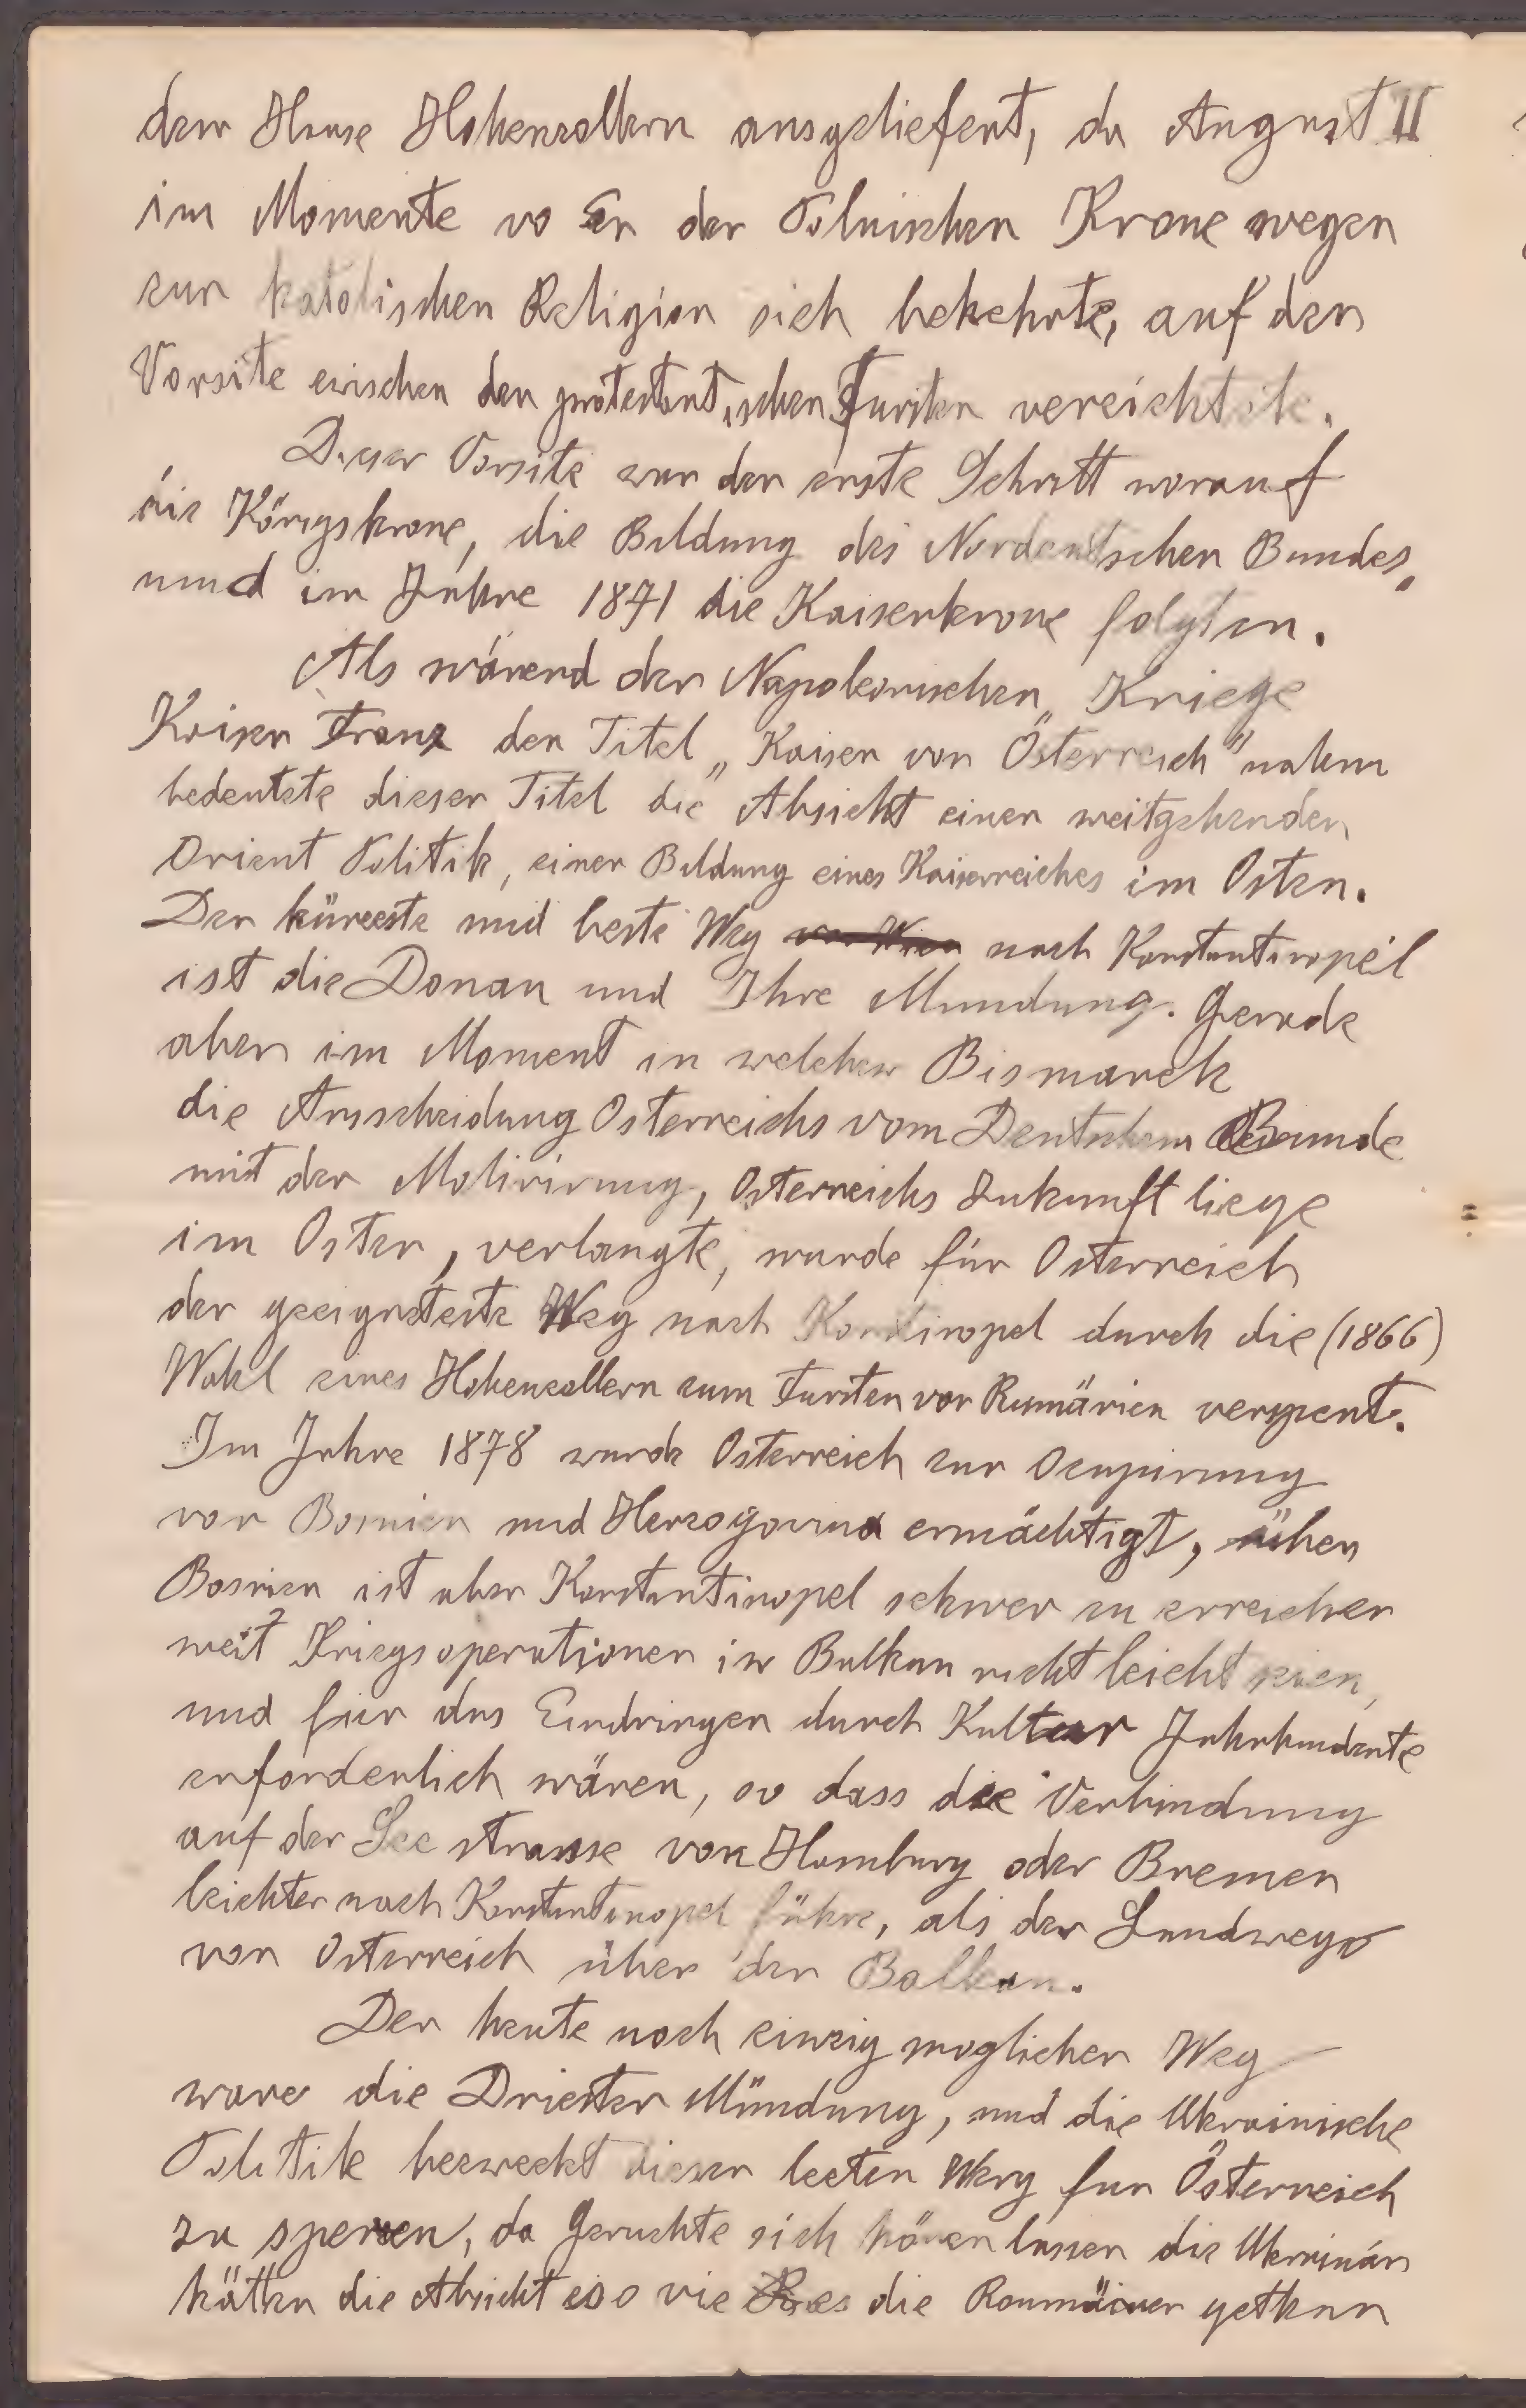 dem Hause Hohenzollern ausgeliefert, da August II
im Momente wo Er der Polnischen Krone wegen
zur katolischen Religion sich bekehrte, auf den
Vorsitz zwischen den protestantischen Fursten verzichtete.
Dieser Vorsitz war der erste Schritt worauf
die Königskrone, die Bildung des Nordeutschen Bundes,
und im Jahre 1871 die Kaiserkrone folgten.
Als wärend der Napoleonischen Kriege
Kaiser Franz den Titel „Kaiser von Österreich" nahm
bedeutete dieser Titel die Absicht einer weitgehenden
Orient Politik, einer Bildung eines Kaiserreiches im Osten.
Der kürzeste und beste Weg von Wien nach Konstantinopel
ist die Donau und Ihre Mundung. Gerade
aber im Moment in welchem Bismarck
die Ausscheidung Osterreichs vom Deutschem Bunde
mit der Motivirung, Osterreichs Zukunft liege
im Osten, verlangte, wurde für Osterreich
der geeigneteste Weg nach Konstinopel durch die (1866)
Wahl eines Hohenzollern zum Fursten von Rumänien versperrt.
Im Jahre 1878 wurde Osterreich zur Ocupirung
von Bosnien und Herzogovina ermächtigt, über
Bosnien ist aber Konstantinopel schwer zu erreichen
weil Kriegsoperationen im Balkan nicht leicht seien,
und für das Eindringen durch Kultur Jahrhunderte
erforderlich wären, so dass die Verbindung
auf der See strasse von Hamburg oder Bremen
leichter nach Konstantinopel führe, als der Landweg
von Osterreich über den Balkan.
Der heute noch einzig moglicher Weg
ware die Dniester Mündung, und die Ukrainische
Politik bezweckt diesen lezten Weg fur Österreich
zu sperren, da Geruchte sich hören lassen die Ukrainär
hätten die Absicht so wie es die Roumäner gethan